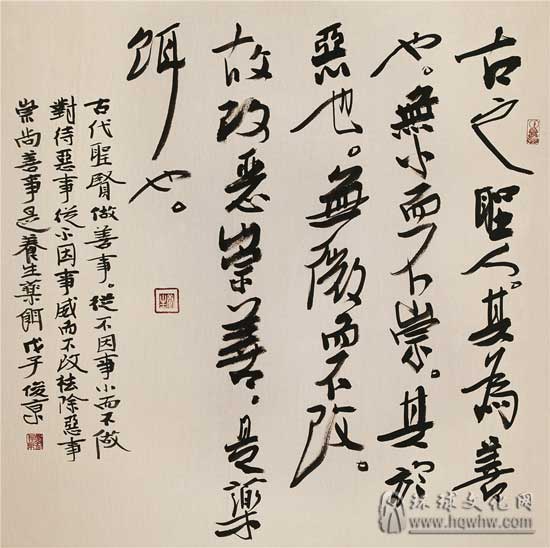 古之聖人。其為善
也。無小而不崇。其於
惡也。無微而不改。
故改惡崇善，是藥
餌也。
古代聖賢做善事。從不因事小而不做
對待惡事從不因事威而不改祛除惡事
崇尚善事是養生藥餌 戊子 俊京
环球文化网
www.hqwhw.com